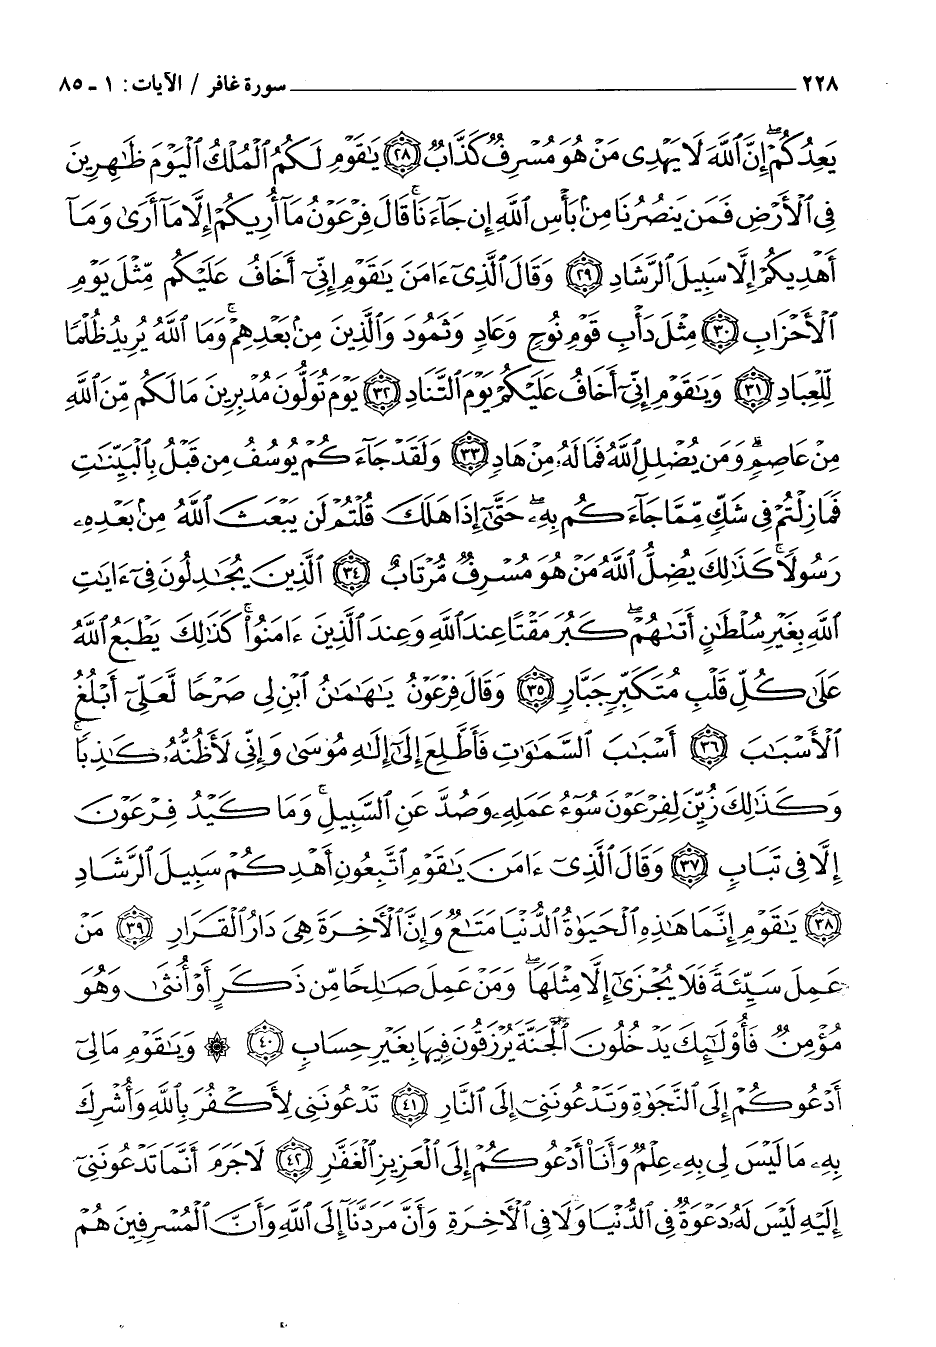 ٢٢٨ سورة غافر / الآيات: ١ ـ ٨٥
يَعِدُكُمْ ۖ إِنَّ ٱللَّهَ لَا يَهْدِى مَنْ هُوَ مُسْرِفٌ كَذَّابٌ ﴿٢٨﴾ يَٰقَوْمِ لَكُمُ ٱلْمُلْكُ ٱلْيَوْمَ ظَٰهِرِينَ
فِى ٱلْأَرْضِ فَمَن يَنصُرُنَا مِنۢ بَأْسِ ٱللَّهِ إِن جَآءَنَا ۚ قَالَ فِرْعَوْنُ مَآ أُرِيكُمْ إِلَّا مَآ أَرَىٰ وَمَآ
أَهْدِيكُمْ إِلَّا سَبِيلَ ٱلرَّشَادِ ﴿٢٩﴾ وَقَالَ ٱلَّذِىٓ ءَامَنَ يَٰقَوْمِ إِنِّىٓ أَخَافُ عَلَيْكُم مِّثْلَ يَوْمِ
ٱلْأَحْزَابِ ﴿٣٠﴾ مِثْلَ دَأْبِ قَوْمِ نُوحٍ وَعَادٍ وَثَمُودَ وَٱلَّذِينَ مِنۢ بَعْدِهِمْ ۚ وَمَا ٱللَّهُ يُرِيدُ ظُلْمًا
لِّلْعِبَادِ ﴿٣١﴾ وَيَٰقَوْمِ إِنِّىٓ أَخَافُ عَلَيْكُمْ يَوْمَ ٱلتَّنَادِ ﴿٣٢﴾ يَوْمَ تُوَلُّونَ مُدْبِرِينَ مَا لَكُم مِّنَ ٱللَّهِ
مِنْ عَاصِمٍ ۗ وَمَن يُضْلِلِ ٱللَّهُ فَمَا لَهُۥ مِنْ هَادٍ ﴿٣٣﴾ وَلَقَدْ جَآءَكُمْ يُوسُفُ مِن قَبْلُ بِٱلْبَيِّنَٰتِ
فَمَا زِلْتُمْ فِى شَكٍّ مِّمَّا جَآءَكُم بِهِۦ ۖ حَتَّىٰٓ إِذَا هَلَكَ قُلْتُمْ لَن يَبْعَثَ ٱللَّهُ مِنۢ بَعْدِهِۦ
رَسُولًا ۚ كَذَٰلِكَ يُضِلُّ ٱللَّهُ مَنْ هُوَ مُسْرِفٌ مُّرْتَابٌ ﴿٣٤﴾ ٱلَّذِينَ يُجَٰدِلُونَ فِىٓ ءَايَٰتِ
ٱللَّهِ بِغَيْرِ سُلْطَٰنٍ أَتَىٰهُمْ ۖ كَبُرَ مَقْتًا عِندَ ٱللَّهِ وَعِندَ ٱلَّذِينَ ءَامَنُوا۟ ۚ كَذَٰلِكَ يَطْبَعُ ٱللَّهُ
عَلَىٰ كُلِّ قَلْبِ مُتَكَبِّرٍ جَبَّارٍ ﴿٣٥﴾ وَقَالَ فِرْعَوْنُ يَٰهَٰمَٰنُ ٱبْنِ لِى صَرْحًا لَّعَلِّىٓ أَبْلُغُ
ٱلْأَسْبَٰبَ ﴿٣٦﴾ أَسْبَٰبَ ٱلسَّمَٰوَٰتِ فَأَطَّلِعَ إِلَىٰٓ إِلَٰهِ مُوسَىٰ وَإِنِّى لَأَظُنُّهُۥ كَٰذِبًا ۚ
وَكَذَٰلِكَ زُيِّنَ لِفِرْعَوْنَ سُوٓءُ عَمَلِهِۦ وَصُدَّ عَنِ ٱلسَّبِيلِ ۚ وَمَا كَيْدُ فِرْعَوْنَ
إِلَّا فِى تَبَابٍ ﴿٣٧﴾ وَقَالَ ٱلَّذِىٓ ءَامَنَ يَٰقَوْمِ ٱتَّبِعُونِ أَهْدِكُمْ سَبِيلَ ٱلرَّشَادِ
﴿٣٨﴾ يَٰقَوْمِ إِنَّمَا هَٰذِهِ ٱلْحَيَوٰةُ ٱلدُّنْيَا مَتَٰعٌ وَإِنَّ ٱلْءَاخِرَةَ هِىَ دَارُ ٱلْقَرَارِ ﴿٣٩﴾ مَنْ
عَمِلَ سَيِّئَةً فَلَا يُجْزَىٰٓ إِلَّا مِثْلَهَا ۖ وَمَنْ عَمِلَ صَٰلِحًا مِّن ذَكَرٍ أَوْ أُنثَىٰ وَهُوَ
مُؤْمِنٌ فَأُو۟لَٰٓئِكَ يَدْخُلُونَ ٱلْجَنَّةَ يُرْزَقُونَ فِيهَا بِغَيْرِ حِسَابٍ ﴿٤٠﴾ ۞ وَيَٰقَوْمِ مَا لِىٓ
أَدْعُوكُمْ إِلَى ٱلنَّجَوٰةِ وَتَدْعُونَنِىٓ إِلَى ٱلنَّارِ ﴿٤١﴾ تَدْعُونَنِى لِأَكْفُرَ بِٱللَّهِ وَأُشْرِكَ
بِهِۦ مَا لَيْسَ لِى بِهِۦ عِلْمٌ وَأَنَا۠ أَدْعُوكُمْ إِلَى ٱلْعَزِيزِ ٱلْغَفَّٰرِ ﴿٤٢﴾ لَا جَرَمَ أَنَّمَا تَدْعُونَنِىٓ
إِلَيْهِ لَيْسَ لَهُۥ دَعْوَةٌ فِى ٱلدُّنْيَا وَلَا فِى ٱلْءَاخِرَةِ وَأَنَّ مَرَدَّنَآ إِلَى ٱللَّهِ وَأَنَّ ٱلْمُسْرِفِينَ هُمْ